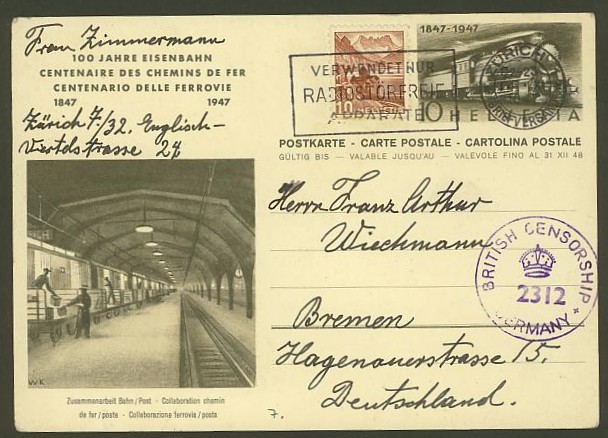 Frau Zimmermann
100 JAHRE EISENBAHN
CENTENAIRE DES CHEMINS DE FER
CENTENARIO DELLE FERROVIE
1847 1947
Zürich 7/32, Englisch-
Viertelstrasse 24
1847-1947
VERWENDET NUR
RADIOSTÖRFREIE
APPARATE
10
10 HELVETIA
ZÜRICH
POSTKARTE - CARTE POSTALE - CARTOLINA POSTALE
GÜLTIG BIS — VALABLE JUSQU'AU — VALÉVOLE FINO AL 31 XII 48
Herrn Franz Arthur
Wiechmann
BRITISH CENSORSHIP
2312
GERMANY
Bremen
Hagenauerstrasse 15.
Deutschland.
WK
Zusammenarbeit Bahn/Post - Collaboration chemin
de fer/poste - Collaborazione ferrovia/posta
7.